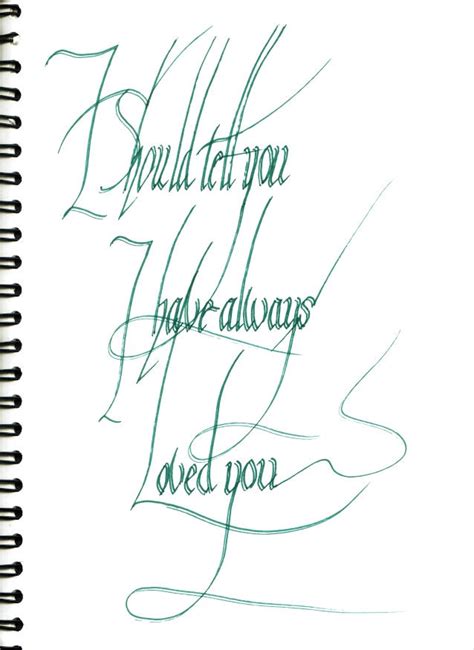 I Should tell you
I have always
Loved you